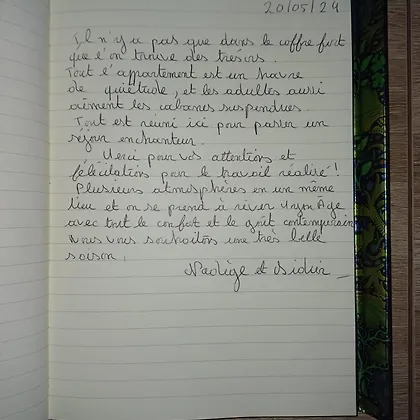 20/05/24
Il n'y a pas que dans le coffre fort
que l'on trouve des trésors.
Tout l'appartement est un havre
de quiétude, et les adultes aussi
aiment les cabanes suspendues.
Tout est réuni ici pour passer un
séjour enchanteur.
Merci pour vos attentions et
félicitations pour le travail réalisé !
Plusieurs atmosphères en un même
lieu et on se prend à rêver
avec tout le confort et le goût contemporain
Nous vous souhaitons une très belle
saison.
Nadège et